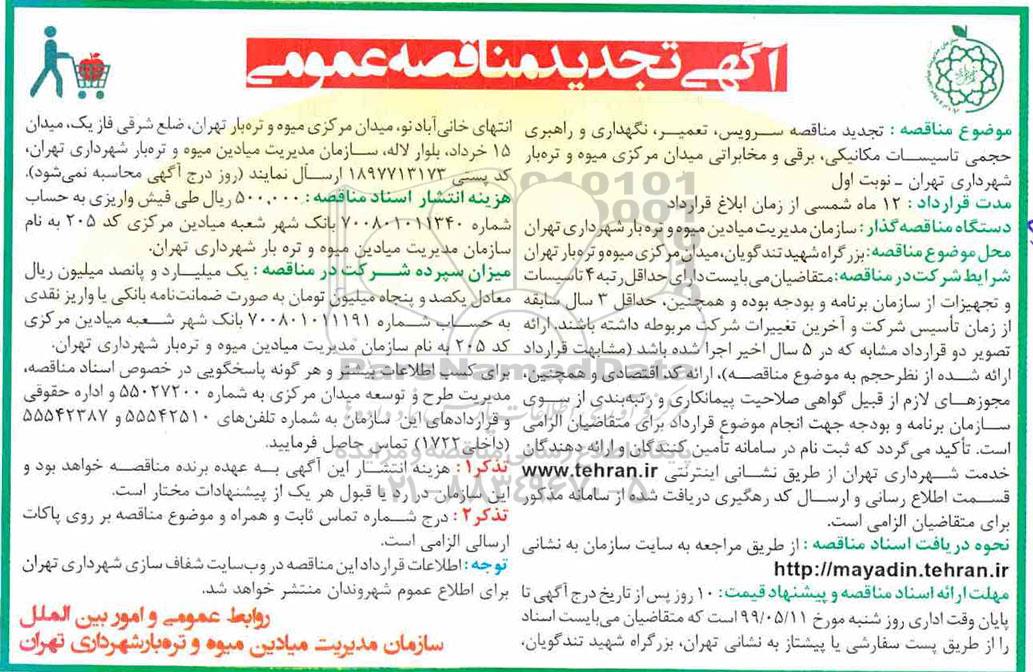 آگهی تجدید مناقصه عمومی
موضوع مناقصه : تجدید مناقصه سرویس، تعمیر، نگهداری و راهبری
حجمی تاسیسات مکانیکی، برقی و مخابراتی میدان مرکزی میوه و تره‌بار
شهرداری تهران ـ نوبت اول
مدت قرارداد : ۱۲ ماه شمسی از زمان ابلاغ قرارداد
دستگاه مناقصه‌گذار: سازمان مدیریت میادین میوه و تره‌بار شهرداری تهران
محل موضوع مناقصه: بزرگراه شهید تندگویان، میدان مرکزی میوه و تره‌بار تهران
شرایط شرکت در مناقصه: متقاضیان می‌بایست دارای حداقل رتبه ۴ تاسیسات
و تجهیزات از سازمان برنامه و بودجه بوده و همچنین، حداقل ۳ سال سابقه
از زمان تأسیس شرکت و آخرین تغییرات شرکت مربوطه داشته باشند. ارائه
تصویر دو قرارداد مشابه که در ۵ سال اخیر اجرا شده باشد (مشابهت قرارداد
ارائه شده از نظر حجم به موضوع مناقصه)، ارائه کد اقتصادی و همچنین،
مجوزهای لازم از قبیل گواهی صلاحیت پیمانکاری و رتبه‌بندی از سوی
سازمان برنامه و بودجه جهت انجام موضوع قرارداد برای متقاضیان الزامی
است. تأکید می‌گردد که ثبت نام در سامانه تأمین کنندگان و ارائه دهندگان
خدمت شهرداری تهران از طریق نشانی اینترنتی www.tehran.ir
قسمت اطلاع رسانی و ارسال کد رهگیری دریافت شده از سامانه مذکور
برای متقاضیان الزامی است.
نحوه دریافت اسناد مناقصه : از طریق مراجعه به سایت سازمان به نشانی
http://mayadin.tehran.ir
مهلت ارائه اسناد مناقصه و پیشنهاد قیمت: ۱۰ روز پس از تاریخ درج آگهی تا
پایان وقت اداری روز شنبه مورخ ۹۹/۰۵/۱۱ است که متقاضیان می‌بایست اسناد
را از طریق پست سفارشی یا پیشتاز به نشانی تهران، بزرگراه شهید تندگویان،
انتهای خانی‌آباد نو، میدان مرکزی میوه و تره‌بار تهران، ضلع شرقی فاز یک، میدان
۱۵ خرداد، بلوار لاله، سازمان مدیریت میادین میوه و تره‌بار شهرداری تهران،
کد پستی ۱۸۹۷۷۱۳۱۷۳ ارسال نمایند (روز درج آگهی محاسبه نمی‌شود).
هزینه انتشار اسناد مناقصه : ۵۰۰,۰۰۰ ریال طی فیش واریزی به حساب
شماره ۷۰۰۸۰۱۰۱۱۳۴۰ بانک شهر شعبه میادین مرکزی کد ۲۰۵ به نام
سازمان مدیریت میادین میوه و تره بار شهرداری تهران.
میزان سپرده شرکت در مناقصه : یک میلیارد و پانصد میلیون ریال
معادل یکصد و پنجاه میلیون تومان به صورت ضمانت‌نامه بانکی یا واریز نقدی
به حساب شماره ۷۰۰۸۰۱۰۱۱۱۹۱ بانک شهر شعبه میادین مرکزی
کد ۲۰۵ به نام سازمان مدیریت میادین میوه و تره‌بار شهرداری تهران.
برای کسب اطلاعات بیشتر و هر گونه پاسخگویی در خصوص اسناد مناقصه،
مدیریت طرح و توسعه میدان مرکزی به شماره ۵۵۰۲۷۲۰۰ و اداره حقوقی
و قراردادهای این سازمان به شماره تلفن‌های ۵۵۵۴۲۵۱۰ و ۵۵۵۴۲۳۸۷
(داخلی ۱۷۲۲) تماس حاصل فرمایید.
تذکر۱: هزینه انتشار این آگهی به عهده برنده مناقصه خواهد بود و
این سازمان در رد یا قبول هر یک از پیشنهادات مختار است.
تذکر۲: درج شماره تماس ثابت و همراه و موضوع مناقصه بر روی پاکات
ارسالی الزامی است.
توجه: اطلاعات قرارداد این مناقصه در وب‌سایت شفاف سازی شهرداری تهران
برای اطلاع عموم شهروندان منتشر خواهد شد.
روابط عمومی و امور بین الملل
سازمان مدیریت میادین میوه و تره‌بار شهرداری تهران
ParsNamadData
۰۲۱-۸۸۳۴۹۶۷۰-۵